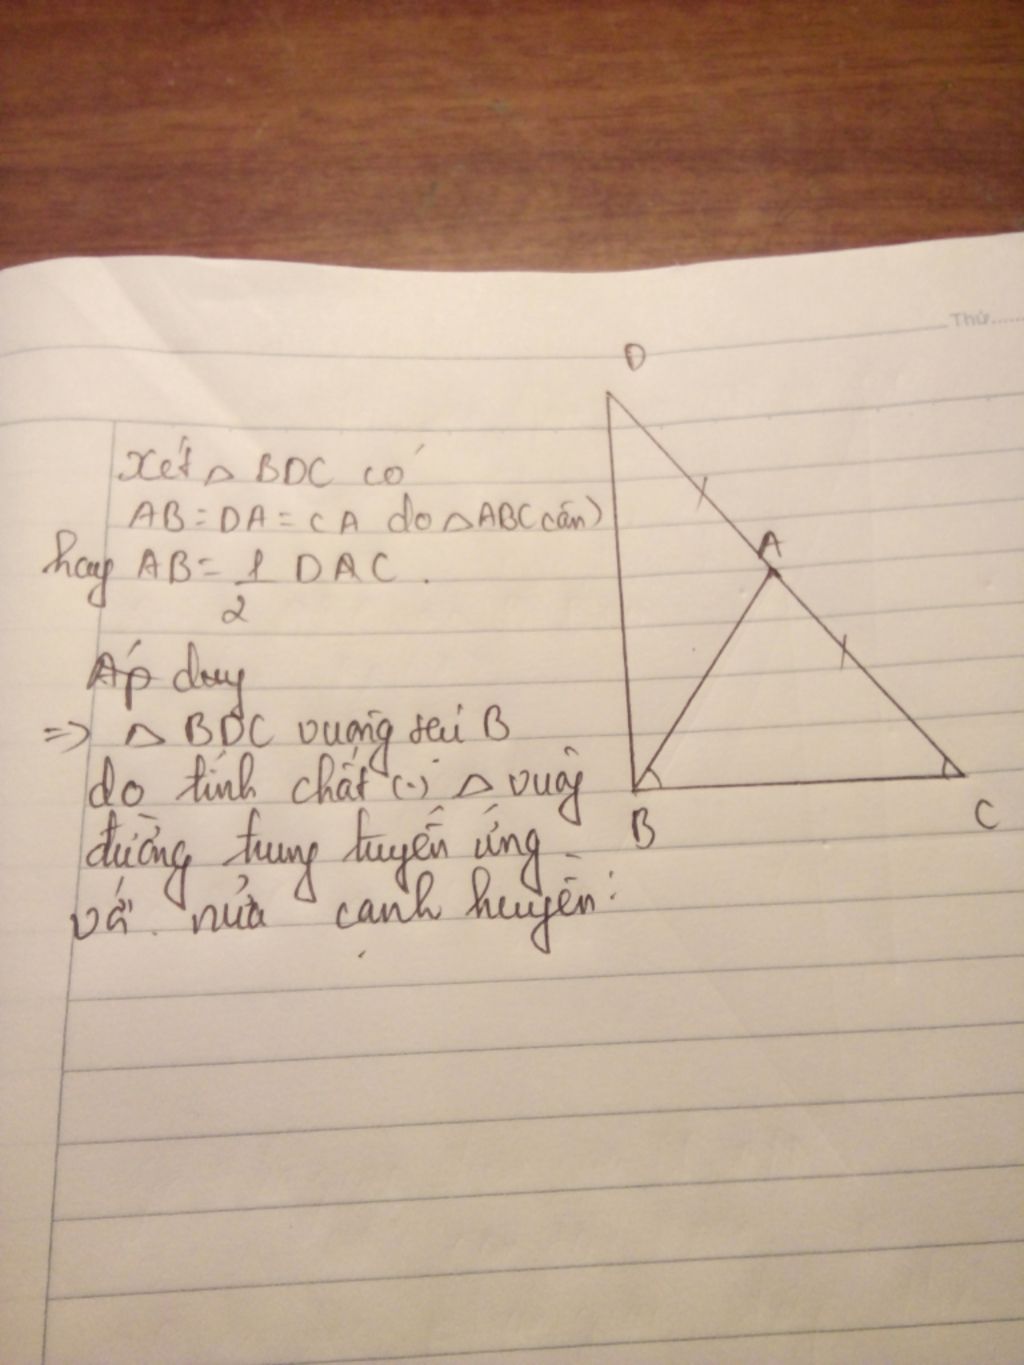 Thứ......
D
Xét △ BDC có
AB = DA = CA do △ABC cân)
hay AB = 1/2 DAC.
A
Áp dụng
=> △ BDC vuông tại B
do tính chất (.) △ vuông
B
C
đường trung tuyến ứng
với nửa cạnh huyền.